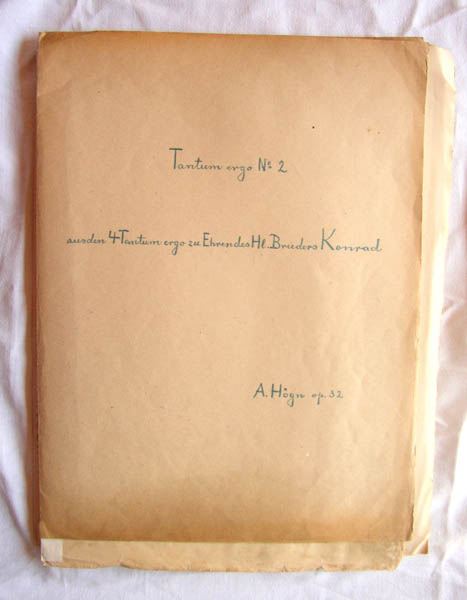 Tantum ergo № 2
aus den 4 Tantum ergo zu Ehren des Hl. Bruders Konrad
A. Högn op. 32